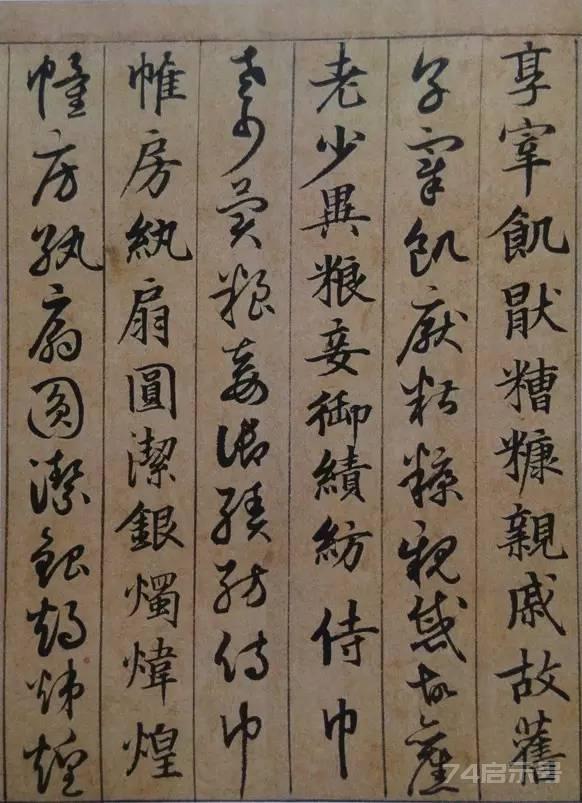 享宰飢猒糟糠親戚故舊
享宰飢厭糟糠親戚故舊
老少異粮妾御績紡侍巾
老少異粮妾御績紡侍巾
帷房紈扇圓潔銀燭煒煌
帷房紈扇圓潔銀燭煒煌
74启示号